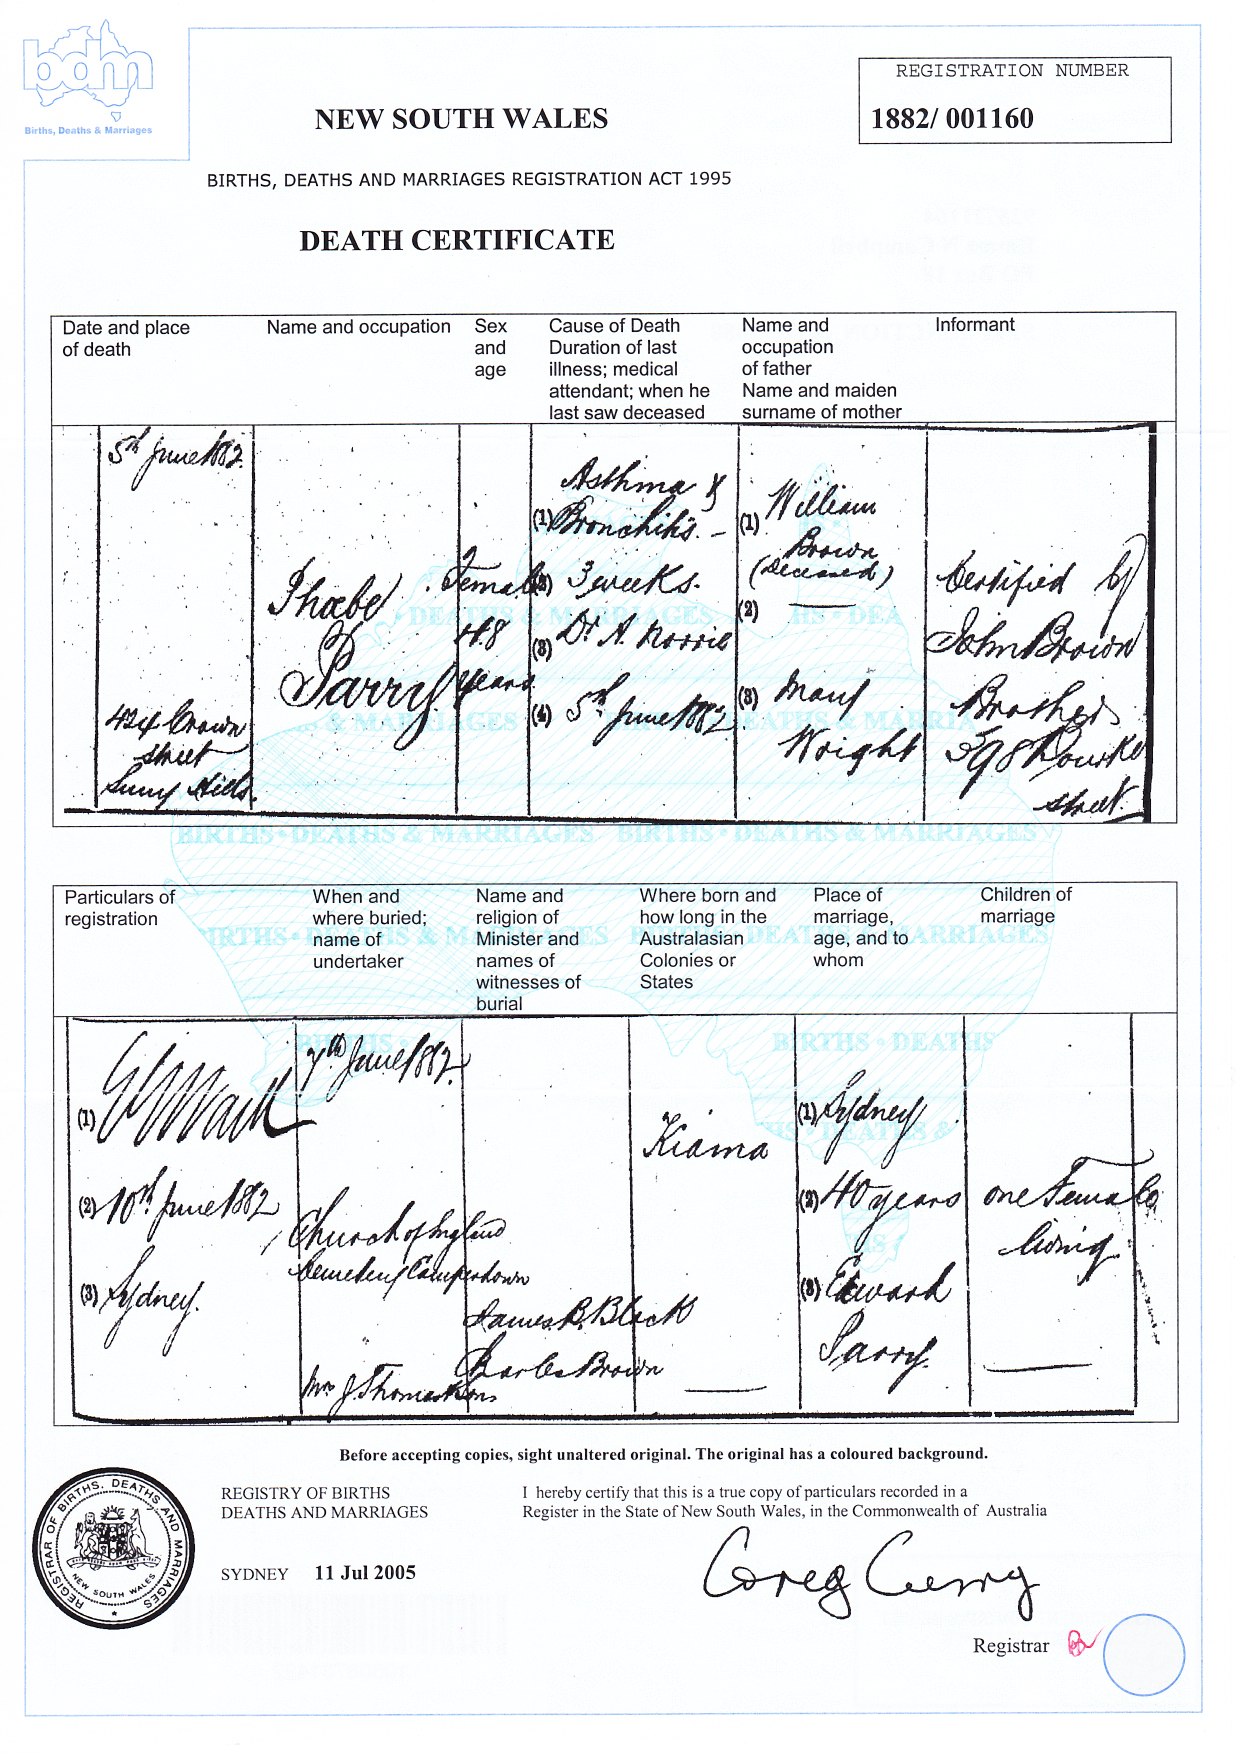 bdm
Births, Deaths & Marriages
REGISTRATION NUMBER
1882/ 001160
NEW SOUTH WALES
BIRTHS, DEATHS AND MARRIAGES REGISTRATION ACT 1995
DEATH CERTIFICATE
Date and place
of death
Name and occupation
Sex
and
age
Cause of Death
Duration of last
illness; medical
attendant; when he
last saw deceased
Name and
occupation
of father
Name and maiden
surname of mother
Informant
5th June 1882.
424 Crown
Street
Surry Hills.
Phoebe
Parry
Female
48
years
Asthma &
(1) Bronchitis. –
(2) 3 weeks.
(3) Dr. A. Norrie
(4) 5th June 1882
(1) William
Brown
(deceased)
(2)
(3) Mary
Wright
Certified by
John Brown
Brother
398 Bourke
Street.
Particulars of
registration
When and
where buried;
name of
undertaker
Name and
religion of
Minister and
names of
witnesses of
burial
Where born and
how long in the
Australasian
Colonies or
States
Place of
marriage,
age, and to
whom
Children of
marriage
(1)
(2) 10th June 1882
(3) Sydney.
7th June 1882.
Church of England
Cemetery Camperdown
Mrs J. Thomas &
James B. Black
Charles Brown
Kiama
(1) Sydney
(2) 40 years
(3) Edward
Parry.
one Female
living
Before accepting copies, sight unaltered original. The original has a coloured background.
REGISTRY OF BIRTHS
DEATHS AND MARRIAGES
SYDNEY 11 Jul 2005
I hereby certify that this is a true copy of particulars recorded in a
Register in the State of New South Wales, in the Commonwealth of Australia
Greg Curry
Registrar
REGISTRAR OF BIRTHS, DEATHS AND MARRIAGES
NEW SOUTH WALES